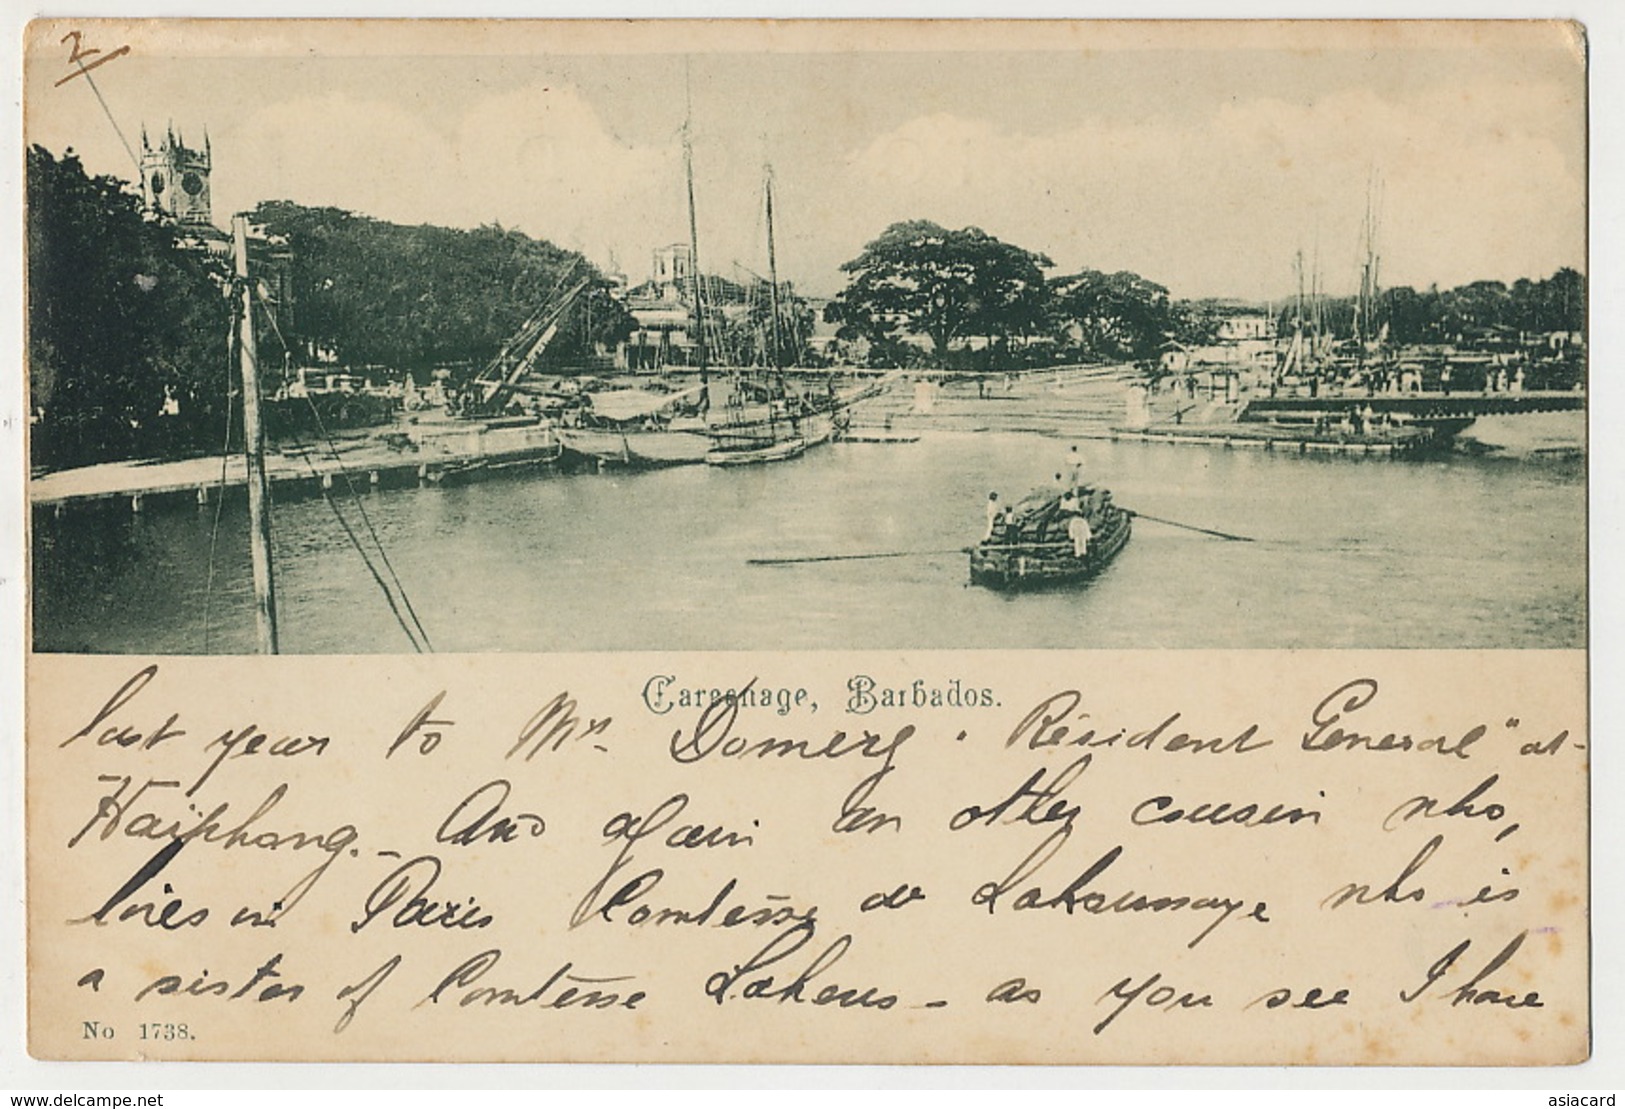 2
Careenage, Barbados.
last year to Mr. Domerg "Résident General" at
Haïphong. _ And again an other cousin who,
lives in Paris Comtesse de who is
a sister of Comtesse - as you see I have
No 1738.
www.delcampe.net
asiacard